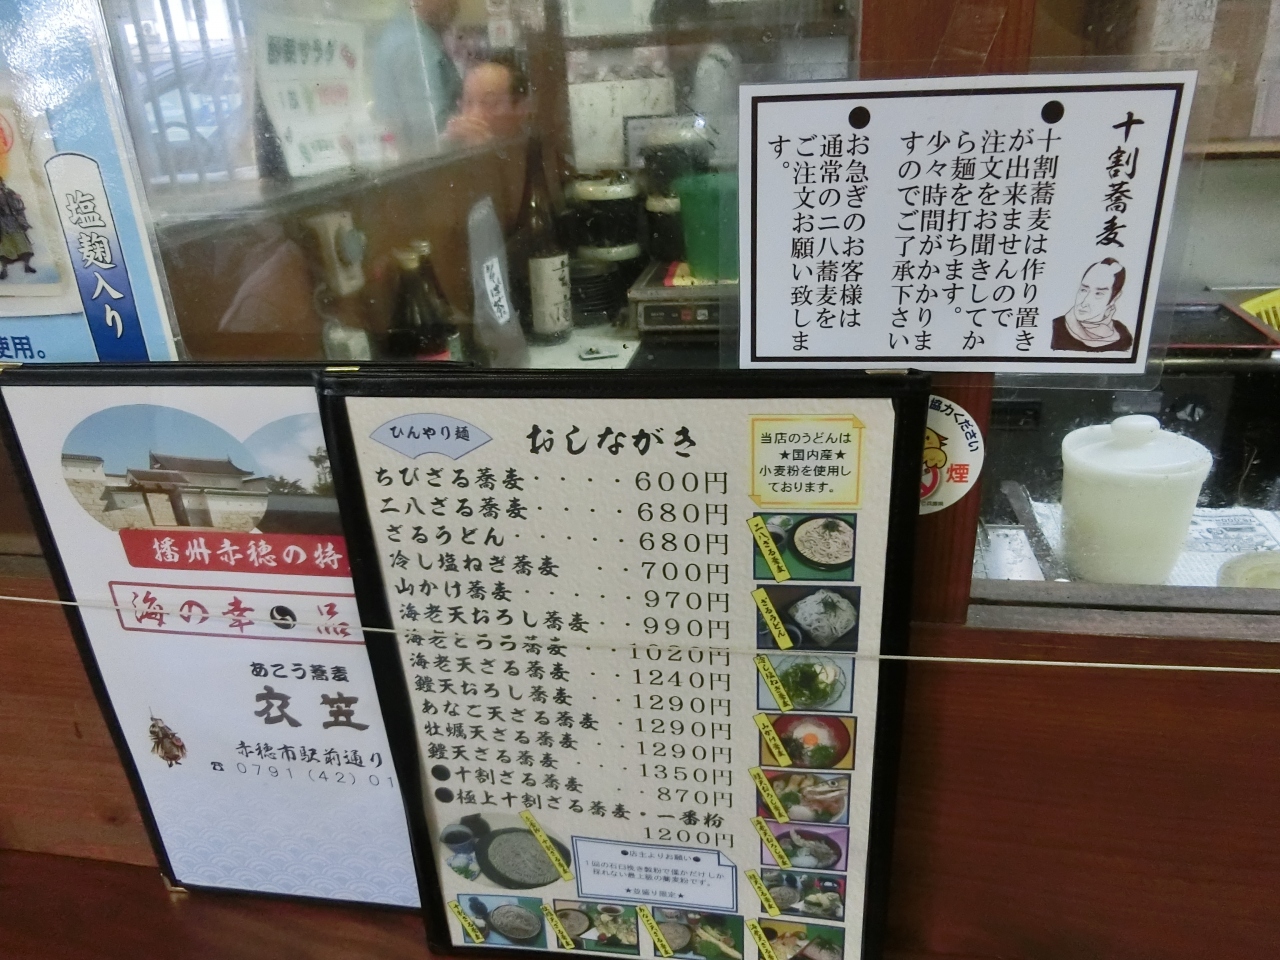 塩麹入り
使用。
十割蕎麦
●十割蕎麦は作り置き
が出来ませんので
注文をお聞きしてか
ら麺を打ちます。
少々時間がかかりま
すのでご了承下さい
●お急ぎのお客様は
通常の二八蕎麦を
ご注文お願い致しま
す。
協力ください
煙
播州赤穂の特
海の幸
あこう蕎麦
衣笠
赤穂市駅前通り
☎0791(42)01
ひんやり麺
おしながき
ちびざる蕎麦････600円
二八ざる蕎麦････680円
ざるうどん･････680円
冷し塩ねぎ蕎麦 ･･700円
山かけ蕎麦･････970円
海老天おろし蕎麦･･990円
海老とろろ蕎麦･･1020円
海老天ざる蕎麦･･1240円
鱧天おろし蕎麦･･1290円
あなご天ざる蕎麦･1290円
牡蠣天ざる蕎麦･･1290円
鱧天ざる蕎麦･･･1350円
●十割ざる蕎麦･･･870円
●極上十割ざる蕎麦・一番粉
1200円
当店のうどんは
★国内産★
小麦粉を使用し
ております。
二八ざる蕎麦
ざるうどん
冷し塩ねぎ蕎麦
山かけ蕎麦
●店主よりお願い●